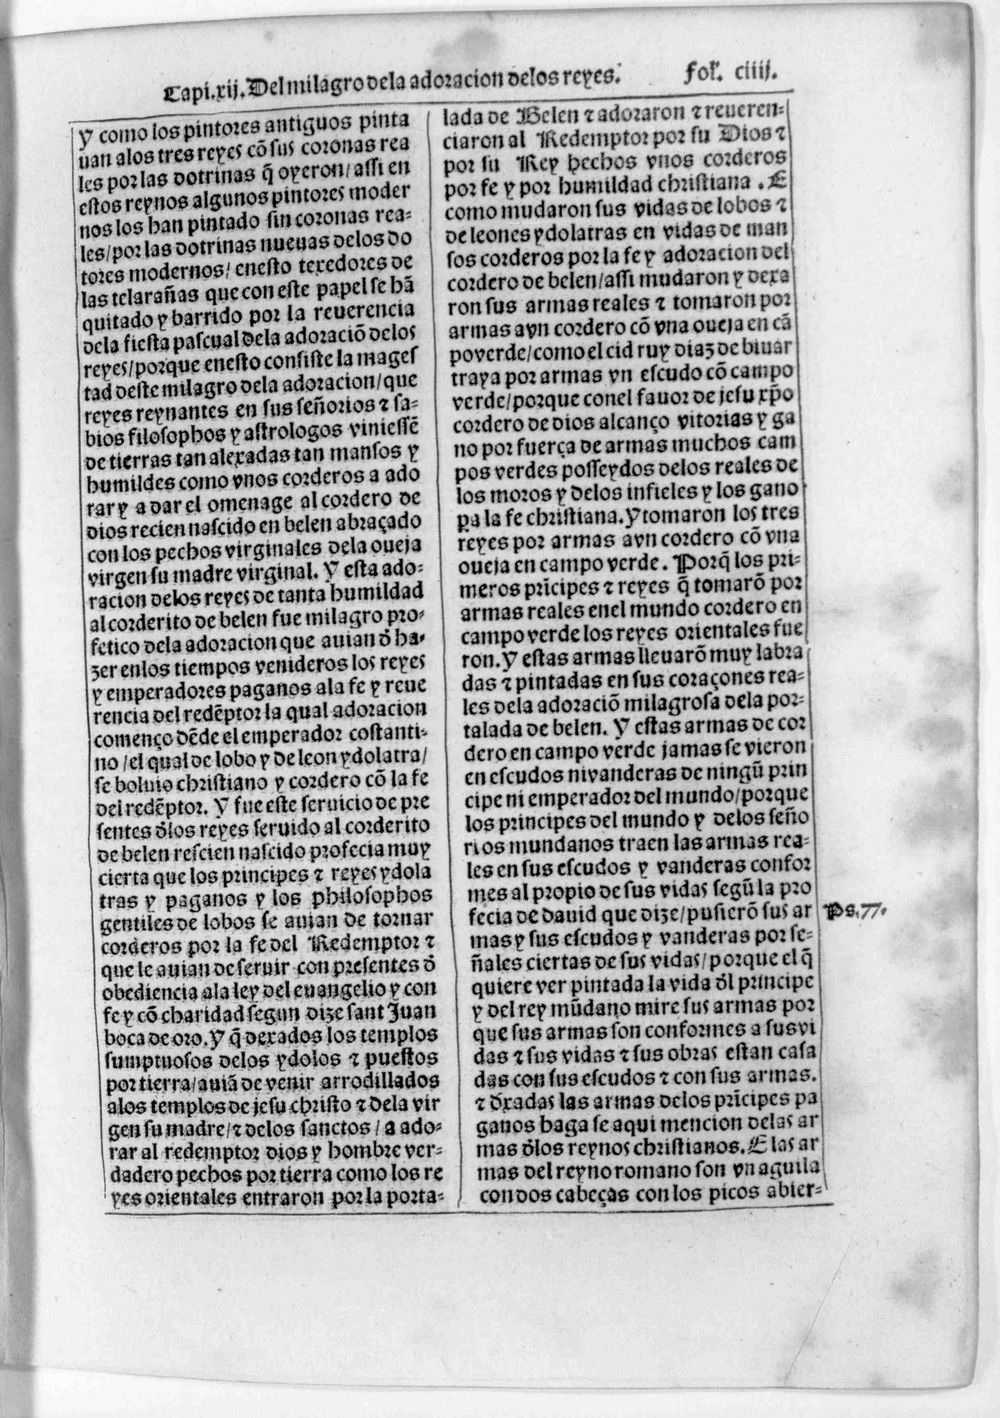 Capi.xij. Del milagro dela adoracion delos reyes. fol. ciiij.
y como los pintores antiguos pinta
uan alos tres reyes cõ sus coronas rea
les por las dotrinas q̃ oyeron/assi en
estos reynos algunos pintores moder
nos los han pintado sin coronas rea-
les/por las dotrinas nueuas delos do
tores modernos/enesto texedores de
las telarañas que con este papel se hã
quitado y barrido por la reuerencia
dela fiesta pascual dela adoraciõ delos
reyes/porque enesto consiste la mages
tad deste milagro dela adoracion/que
reyes reynantes en sus señorios ⁊ sa-
bios filosophos y astrologos viniessẽ
de tierras tan alexadas tan mansos y
humildes como vnos corderos a ado
rar y a dar el omenage al cordero de
dios recien nascido en belen abraçado
con los pechos virginales dela oueja
virgen su madre virginal. Y esta ado-
racion delos reyes de tanta humildad
al corderito de belen fue milagro pro-
fetico dela adoracion que auian d̃ ha-
zer enlos tiempos venideros los reyes
y emperadores paganos ala fe y reue
rencia del redẽptor la qual adoracion
començo dẽde el emperador costanti-
no/el qual de lobo y de leon ydolatra/
se boluio christiano y cordero cõ la fe
del redẽptor. Y fue este seruicio de pre
sentes d̃los reyes seruido al corderito
de belen rescien nascido profecia muy
cierta que los principes ⁊ reyes ydola
tras y paganos y los philosophos
gentiles de lobos se auian de tornar
corderos por la fe del Redemptor ⁊
que le auian de seruir con presentes d̃
obediencia ala ley del euangelio y con
fe y cõ charidad segun dize sant Juan
boca de oro. Y q̃ dexados los templos
sumptuosos delos ydolos ⁊ puestos
por tierra/auiã de venir arrodillados
alos templos de jesu christo ⁊ dela vir
gen su madre/⁊ delos sanctos/a ado-
rar al redemptor dios y hombre ver-
dadero pechos por tierra como los re
yes orientales entraron por la porta-
lada de Belen ⁊ adoraron ⁊ reueren-
ciaron al Redemptor por su Dios ⁊
por su Rey hechos vnos corderos
por fe y por humildad christiana. E
como mudaron sus vidas de lobos ⁊
de leones ydolatras en vidas de man
sos corderos por la fe y adoracion del
cordero de belen/assi mudaron y dexa
ron sus armas reales ⁊ tomaron por
armas avn cordero cõ vna oueja en cã
po verde/como el cid ruy diaz de biuar
traya por armas vn escudo cõ campo
verde/porque conel fauor de jesu xp̃o
cordero de dios alcanço vitorias y ga
no por fuerça de armas muchos cam
pos verdes posseydos delos reales de
los moros y delos infieles y los gano
pa la fe christiana. Y tomaron los tres
reyes por armas avn cordero cõ vna
oueja en campo verde. Porq̃ los pri-
meros prĩcipes ⁊ reyes q̃ tomarõ por
armas reales enel mundo cordero en
campo verde los reyes orientales fue
ron. Y estas armas lleuarõ muy labra
das ⁊ pintadas en sus coraçones rea-
les dela adoraciõ milagrosa dela por-
talada de belen. Y estas armas de cor
dero en campo verde jamas se vieron
en escudos ni vanderas de ningũ prin
cipe ni emperador del mundo/porque
los principes del mundo y delos seño
rios mundanos traen las armas rea-
les en sus escudos y vanderas confor
mes al propio de sus vidas segũ la pro
fecia de dauid que dize/pusierõ sus ar
mas y sus escudos y vanderas por se-
ñales ciertas de sus vidas/porque el q̃
quiere ver pintada la vida d̃l principe
y del rey mũdano mire sus armas por
que sus armas son conformes a sus vi
das ⁊ sus vidas ⁊ sus obras estan casa
das con sus escudos ⁊ con sus armas.
⁊ d̃xadas las armas delos prĩcipes pa
ganos haga se aqui mencion delas ar
mas d̃los reynos christianos. E las ar
mas del reyno romano son vn aguila
con dos cabeças con los picos abier-
Ps.77.